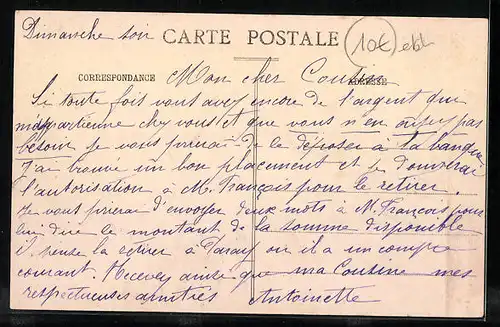 Dimanche soir
CARTE POSTALE
10€
CORRESPONDANCE
ADRESSE
Mon cher Cousin
Si toute fois vous avez encore de l'argent qui
m'appartienne chez vous et que vous n'en ayez pas
besoin je vous prierai de le déposer à la banque
J'ai trouvé un bon placement et je donnerai
l'autorisation à M. François pour le retirer.
Je vous prierai d'envoyer deux mots à M. François pour
lui dire le montant de la somme disponible
il pense la retirer à où il a un compte
courant. Recevez ainsi que ma Cousine mes
respectueuses amitiés Antoinette